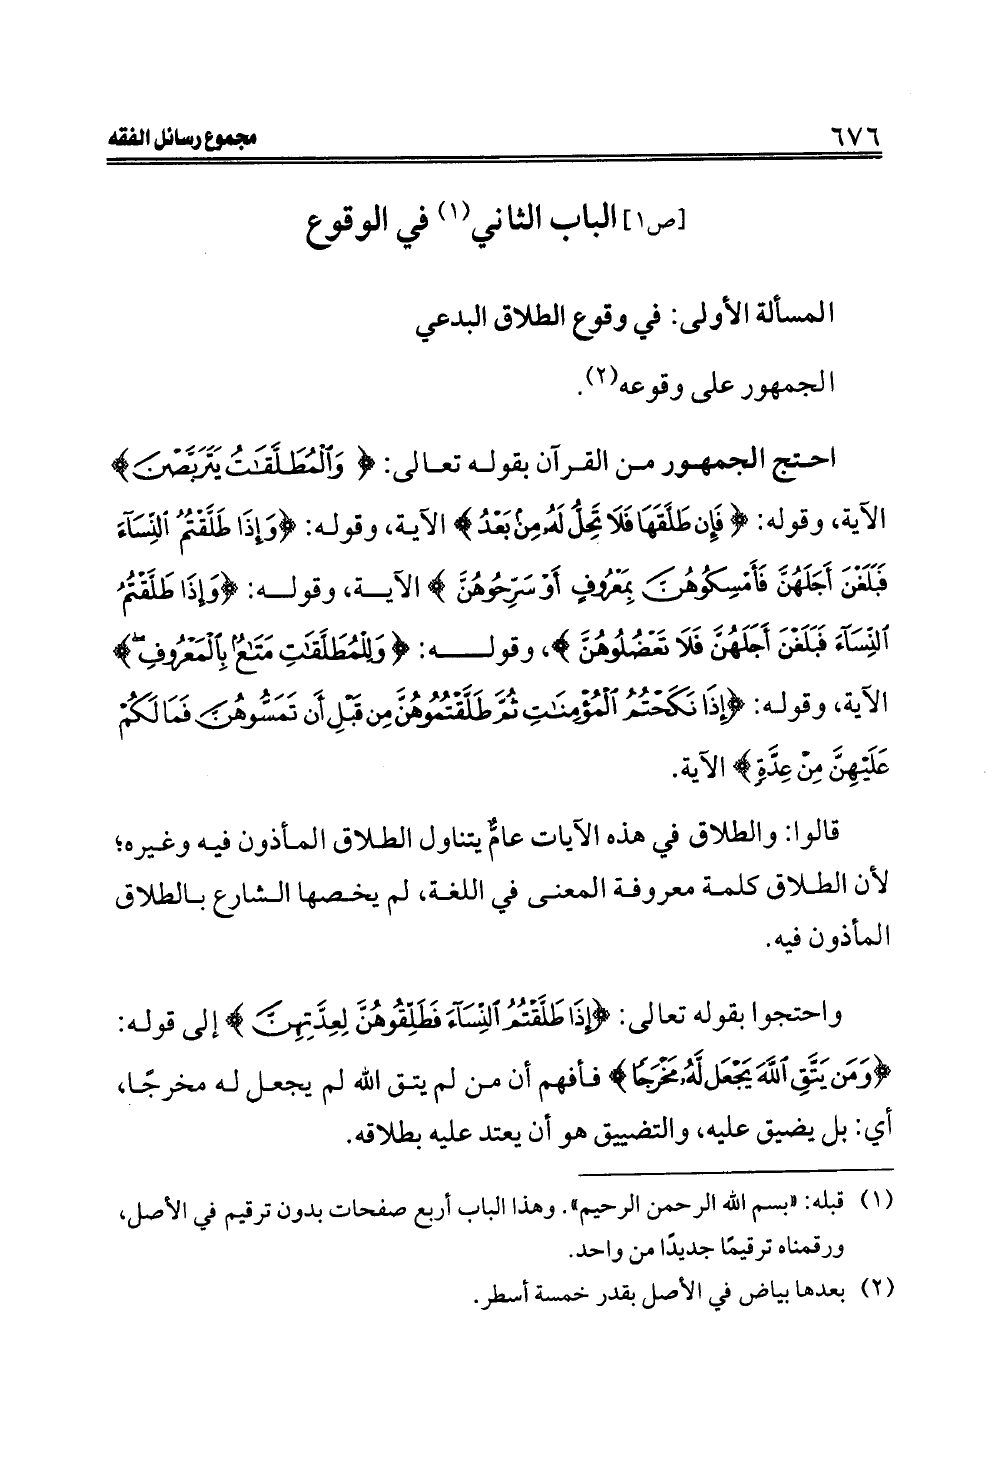 ٦٧٦ مجموع رسائل الفقه
[ص١] الباب الثاني(١) في الوقوع
المسألة الأولى: في وقوع الطلاق البدعي
الجمهور على وقوعه(٢).
احتج الجمهور من القرآن بقوله تعالى: ﴿وَٱلۡمُطَلَّقَٰتُ يَتَرَبَّصۡنَ﴾
الآية، وقوله: ﴿فَإِن طَلَّقَهَا فَلَا تَحِلُّ لَهُۥ مِنۢ بَعۡدُ﴾ الآية، وقوله: ﴿وَإِذَا طَلَّقۡتُمُ ٱلنِّسَآءَ
فَبَلَغۡنَ أَجَلَهُنَّ فَأَمۡسِكُوهُنَّ بِمَعۡرُوفٍ أَوۡ سَرِّحُوهُنَّ﴾ الآيـة، وقولـه: ﴿وَإِذَا طَلَّقۡتُمُ
ٱلنِّسَآءَ فَبَلَغۡنَ أَجَلَهُنَّ فَلَا تَعۡضُلُوهُنَّ﴾، وقولـــه: ﴿وَلِلۡمُطَلَّقَٰتِ مَتَٰعُۢ بِٱلۡمَعۡرُوفِۖ﴾
الآية، وقوله: ﴿إِذَا نَكَحۡتُمُ ٱلۡمُؤۡمِنَٰتِ ثُمَّ طَلَّقۡتُمُوهُنَّ مِن قَبۡلِ أَن تَمَسُّوهُنَّ فَمَا لَكُمۡ
عَلَيۡهِنَّ مِنۡ عِدَّةٖ﴾ الآية.
قالوا: والطلاق في هذه الآيات عامٌّ يتناول الطلاق المأذون فيه وغيره؛
لأن الطلاق كلمة معروفة المعنى في اللغة، لم يخصها الشارع بالطلاق
المأذون فيه.
واحتجوا بقوله تعالى: ﴿إِذَا طَلَّقۡتُمُ ٱلنِّسَآءَ فَطَلِّقُوهُنَّ لِعِدَّتِهِنَّ﴾ إلى قوله:
﴿وَمَن يَتَّقِ ٱللَّهَ يَجۡعَل لَّهُۥ مَخۡرَجٗا﴾ فأفهم أن من لم يتق الله لم يجعل له مخرجًا،
أي: بل يضيق عليه، والتضييق هو أن يعتد عليه بطلاقه.
(١) قبله: «بسم الله الرحمن الرحيم». وهذا الباب أربع صفحات بدون ترقيم في الأصل،
ورقمناه ترقيمًا جديدًا من واحد.
(٢) بعدها بياض في الأصل بقدر خمسة أسطر.